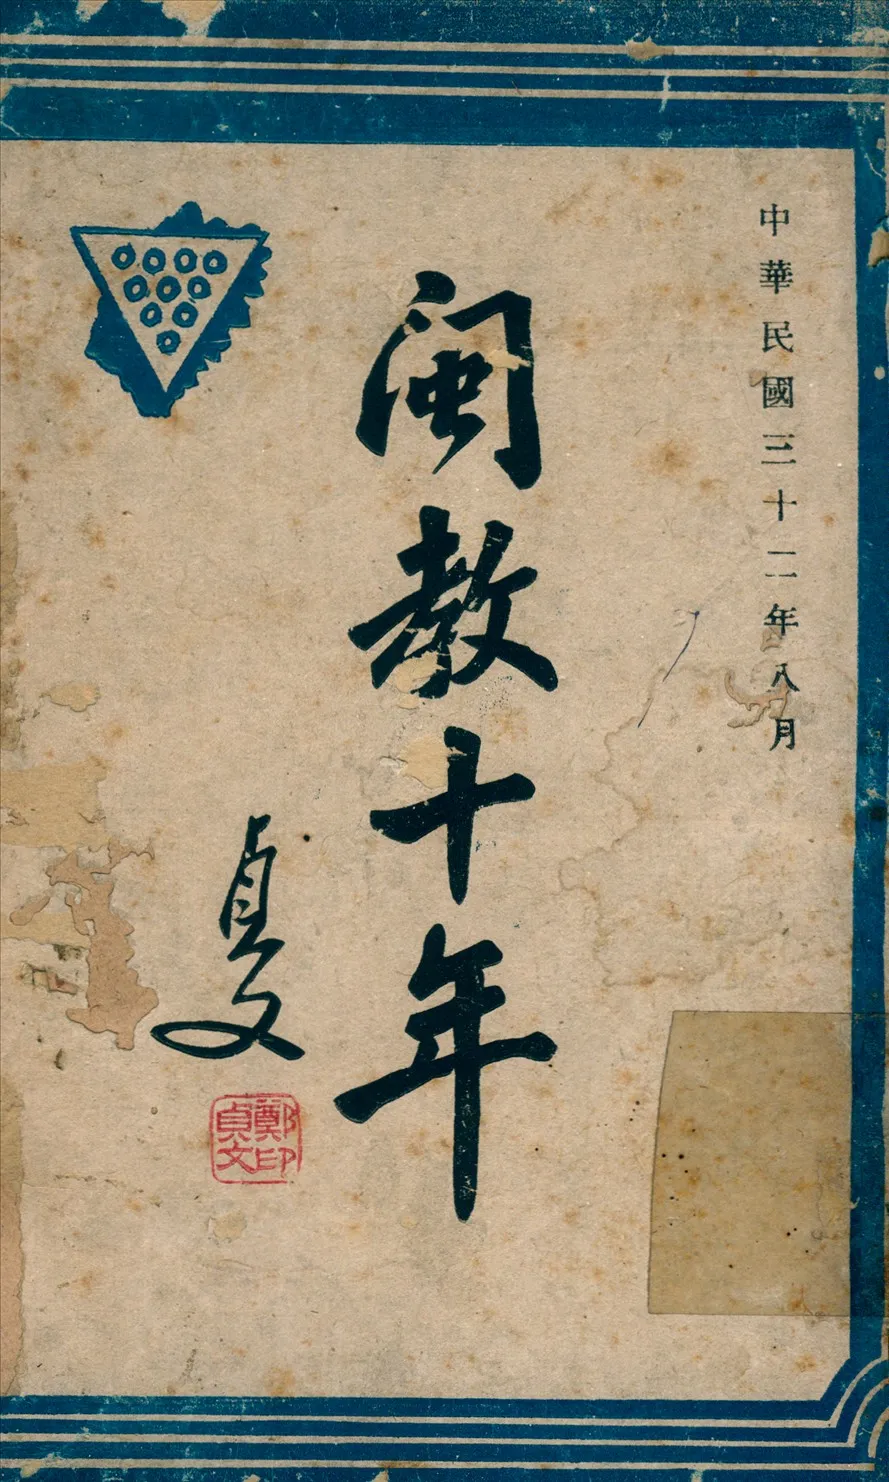 中華民國三十二年八月
閩教十年
貞文
鄭貞文印